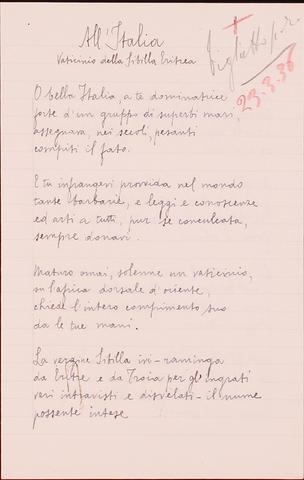 All'Italia
Vaticinio della Sibilla Eritrea
Biglietto p.r.
23.3.36
O bella Italia, a te dominatrice
forte d'un gruppo di superbi mari,
assegnava, nei secoli, pesanti
compiti il fato.
E tu infrangevi provvida nel mondo
tante barbarie, e leggi e conoscenze
ed arti a tutti, pur se conculcata,
sempre donavi.
Maturo omai, solenne un vaticinio,
su l'aprica dorsale d'oriente,
chiede l'intero compimento suo
da le tue mani.
La vergine Sibilla ivi - raminga
da Eritre e da Troia per gl'ingrati
veri intravisti e disvelati - il nume
possente intese